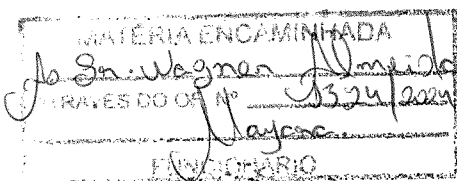 MATÉRIA ENCAMINHADA
Ao Sr. Wagner Almeida
ATRAVÉS DO OF. Nº 1324/2024
Nayara
FUNCIONÁRIO